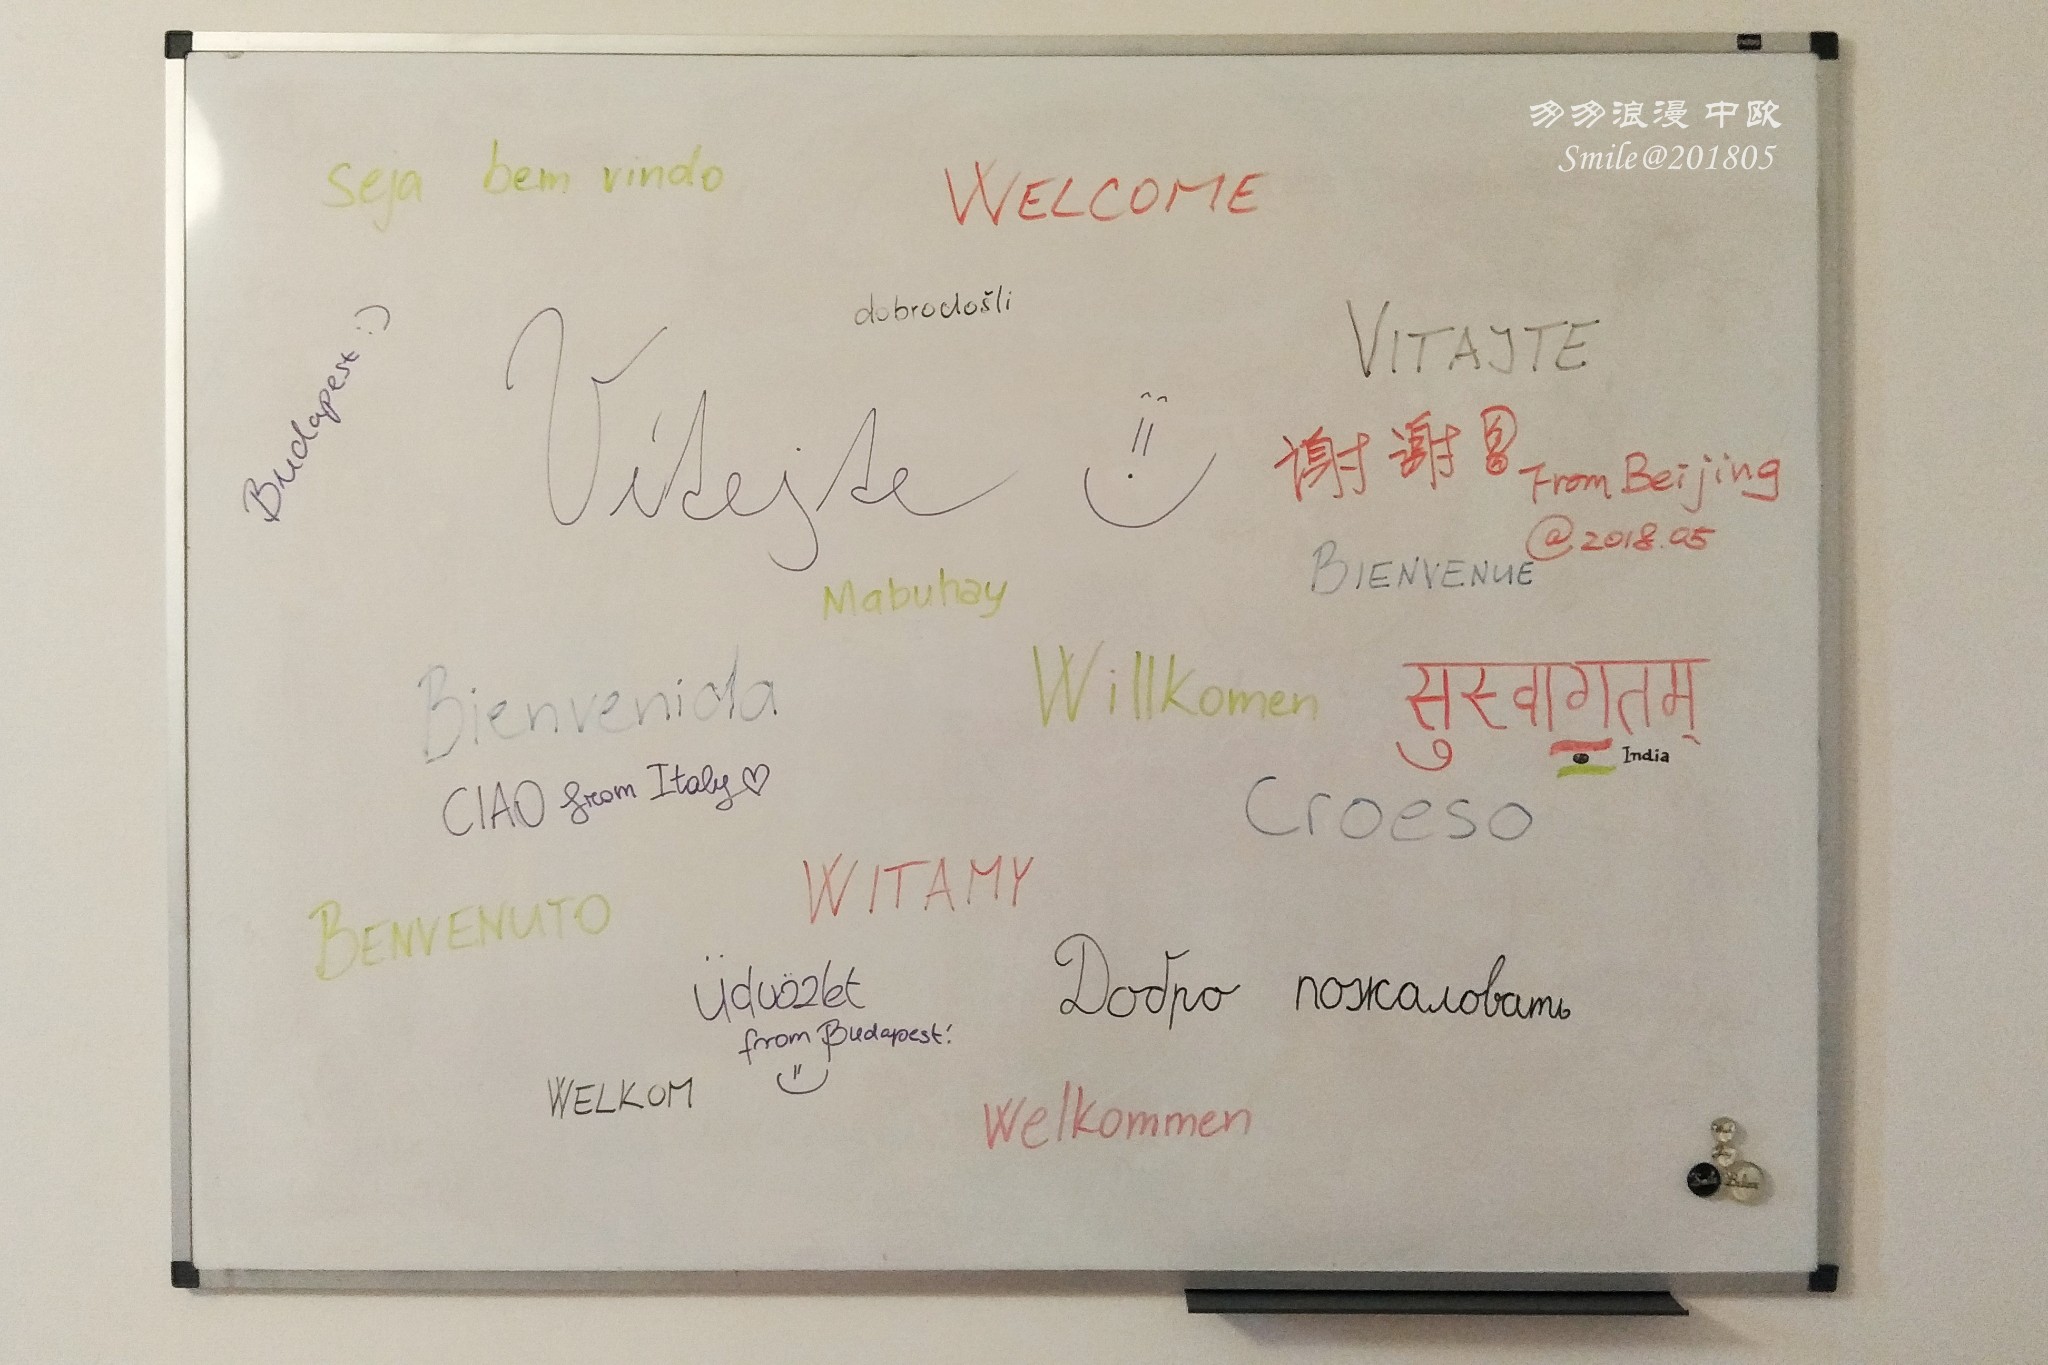 多多浪漫 中欧
Smile@201805
seja bem vindo
WELCOME
dobrodošli
Budapest :)
Vítejte
VITAJTE
谢谢
From Beijing
@2018.05
BIENVENUE
Mabuhay
Bienvenida
Willkomen
सुस्वागतम्
India
CIAO from Italy ♡
Croeso
WITAMY
BENVENUTO
Üdvözlet
from Budapest!
Добро пожаловать
WELKOM
Welkommen